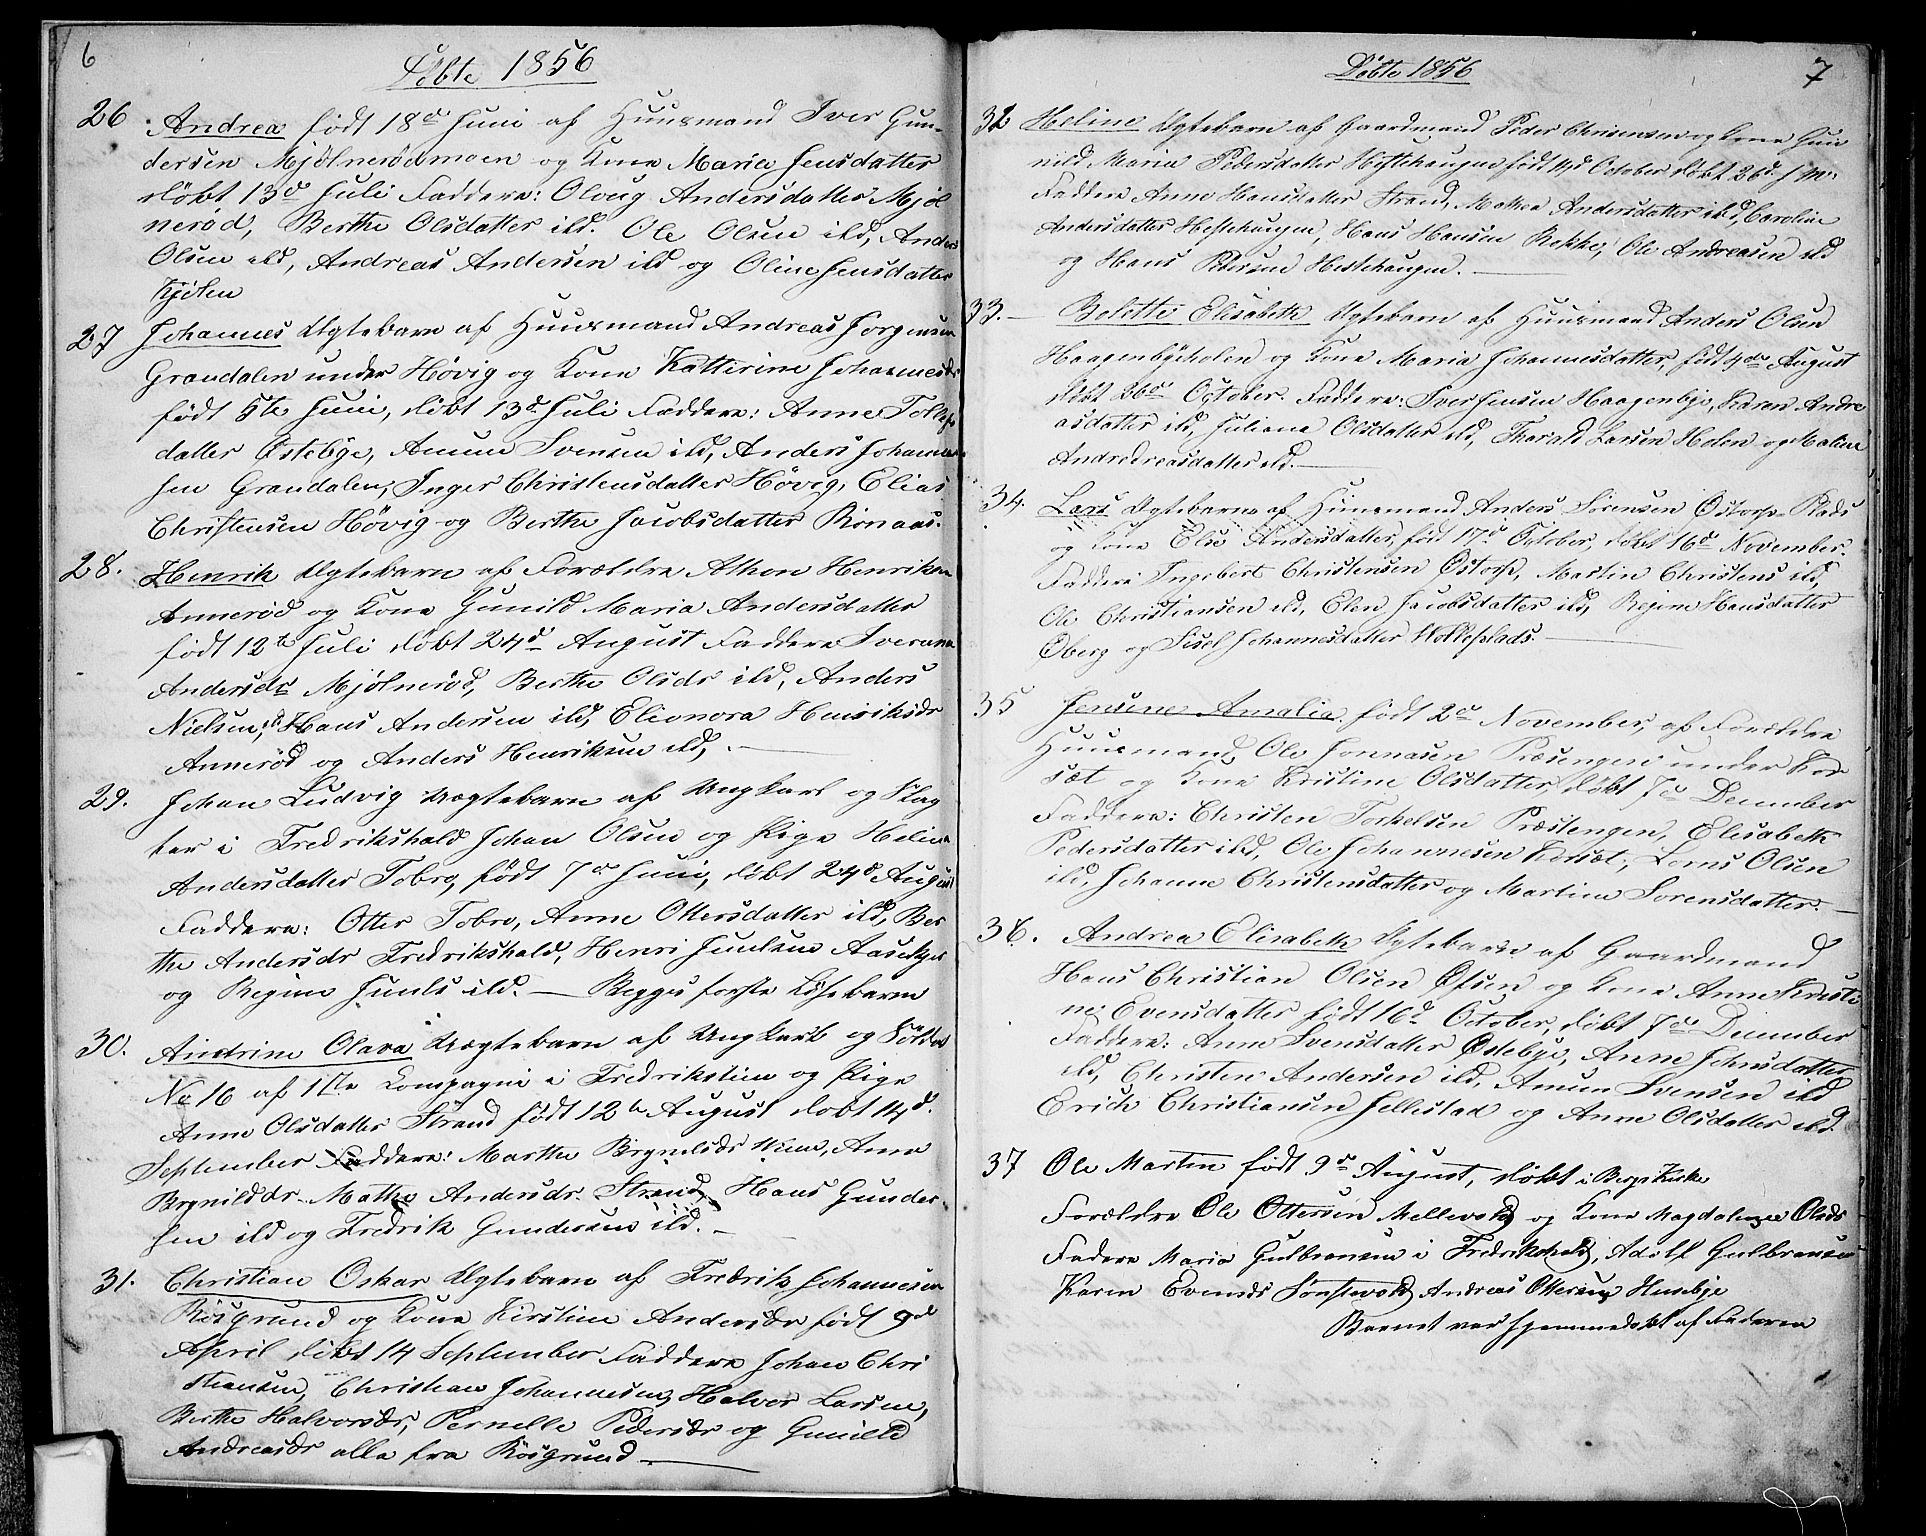 6
Döbte 1856
26 Andrea födt 18de Juni af Huusmand Iver Gun-
dersen Mjölnerödmoen og Kone Maria Jensdatter
döbt 13de Juli Faddere: Oloug Andersdatter Mjöl
neröd, Berthe Olsdatter ild. Ole Olsen ild, Anders
Olsen ild, Andreas Andersen ild og Oline Jensdatter
Kjölen
27 Johannes Ægtebarn af Huusmand Andreas Jörgensen
Grandalen under Hövig og Kone Katterine Johannesdr
födt 5te Juni, döbt 13de Juli Faddere: Anne Tollefs
datter Östebye, Amun Svensen ild, Anders Johanne
sen Grandalen, Inger Christensdatter Hövig, Elias
Christensen Hövig og Berthe Jacobsdatter Rönaas.
28. Henrik Ægtebarn af Forældre Athon Henriksen
Anneröd og Kone Gunild Maria Andersdatter
födt 12te Juli döbt 24d August Faddere Iverane
Andersdr Mjölneröd, Berthe Olsdr ild, Anders
Nielsen, Hans Andersen ild, Elionora Henriksdr
Anneröd og Anders Henriksen ild,
29. Johan Ludvig Uægtebarn af Ungkarl og Slag
ter i Fredrikshald Johan Olsen og Pige Helene
Andersdatter Tobro, födt 7de Juni, döbt 24de August
Faddere: Otter Tobro, Anne Ottersdatter ild, Ber
the Andersdr Fredrikshald, Henri Juulsen
og Regine Juuls ild. — Begges förste Löse barn
30. Andrine Olava Uægtebarn af Ungkarl og Soldat
No 16 af 17te Kompagni i Fredriksteen og Pige
Anne Olsdatter Strand födt 12te August döbt 14d.
September Faddere: Marthe Brynildsdr Wiim, Anne
Brynilddr Mathe Andersdr. Strand, Hans Gunder-
sen ild og Fredrik Gundersen ild. —
31. Christian Oskar Ægtebarn af Fredrik Johannesen
Rösgrund og Kone Kirstine Andersdr födt 9d
April döbt 14 September Faddere Johan Chri
stiansen, Christian Johannesen, Halvor Larsen,
Berthe Halvorsdr, Pernelle Pedersdr og Gunild
Andreasdr alle fra Rösgrund —
Döbte 1856
7
32 Heline Ægtebarn af Gaardmand Peder Chrisensen og Kone Gun
nild Maria Pedersdatter Hestehaugen födt 14d October döbt 26d s M.
Faddere Anne Hansdatter Strand, Mathea Andersdatter ild, Caroline
Andersdatter Hestehaugen, Hans Hansen Bekke, Ole Andreasen ild
og Hans Pedersen Hestehaugen. —
33. — Bolette Elisabeth Ægtebarn af Huusmand Anders Olsen
Haagenbyeholen og Kone Maria Johannesdatter, födt 4de August
döbt 26de October. Faddere: Iver Jensen Haagenbye, Karen Andre
asdatter ild, Juliana Olsdatter ild, Tharald Larsen Holen og Maline
Andredreasdatter ild. —
34. Lars Ægtebarn af Huusmand Anders Sörensen Östorp Plads
og Kone Else Andersdatter, födt 17d October, döbt 16d November.
Faddere Ingebert Christensen Östorp, Martin Christens ild,
Ole Christiansen ild, Elen Jacobsdatter ild, Regine Hansdatter
Öberg og Sisel Johannesdatter Wolleplads. —
35 Jensine Amalia födt 2de November, af Forældre
Huusmand Ole Jonnasen Præsengen under Kor
sæt og Kone Kristine Olsdatter, döbt 7de December
Faddere: Christen Torkelsen Præstengen, Elisabeth
Pedersdatter ild, Ole Johannesen Korsæt, Lorns Olsen
ild, Johanne Christensdatter og Martine Sorensdatter. —
36. Andrea Elisabeth Ægtebarn af Gaardmand
Hans Christian Olsen Öfsen og Kone Anne Kristi
ne Evensdatter födt 16d October, döbt 7de December
Faddere: Anne Svensdatter Östebye, Anne Jensdatter
ild, Christen Andersen ild, Amun Svensen ild
Erich Christiansen Jellestad og Anne Olsdatter ild.
37 Ole Martin födt 9de August, döbt i Bergs Kirke
Forældre Ole Ottersen Mellevold og Kone Magdalene Olsdr
Fadere Maria Gulbransen i Fredrikshald, Adolf Gulbransen
Karen Evensdr Sönstevold Andreas Ottersen Husebye
Barnet var hjemmedöbt af Faderen